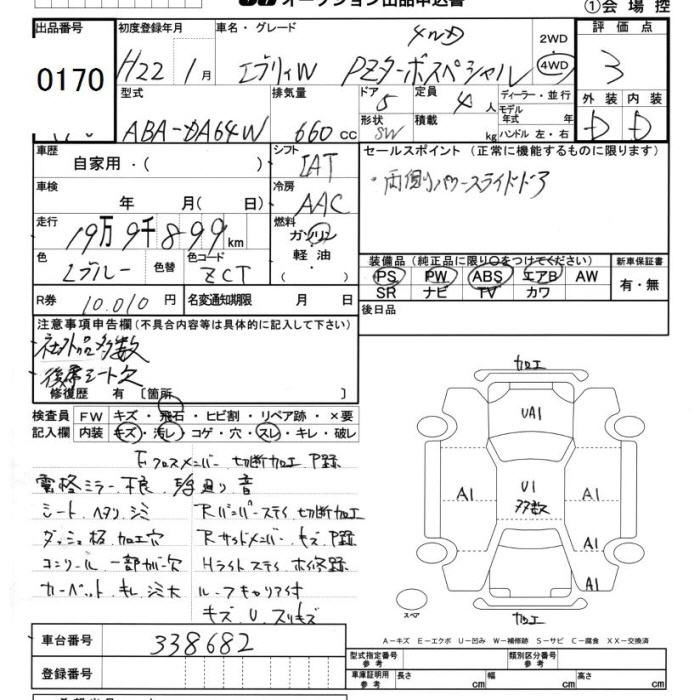 オークション出品申込書
①会場控
出品番号 初度登録年月 車名・グレード 評価点
0170 H22 1月 エブリィW PZターボスペシャル 4WD 2WD 4WD 3
型式 排気量 ドア 定員 ディーラー・並行 外装 内装
ABA-DA64W 660cc 5 4人 モデル年式 年 D D
形状 SW 積載 kg ハンドル 左・右
車歴 シフト セールスポイント(正常に機能するものに限ります)
自家用・( ) IAT
・両側パワースライドドア
車検 冷房
年 月(日) AAC
走行 燃料
19万9千899km ガソリン
軽油
・( )
色 Lブルー 色替 色コード ZCT
装備品(純正品に限り○をつけてください) 新車保証書
PS PW ABS エアB AW 有・無
SR ナビ TV カワ
R券 10.010円 名変通知期限 月 日
後日品
注意事項申告欄(不具合内容等は具体的に記入して下さい)
社外品多数
後席シート欠
修復歴 有 [箇所 ]
検査員 FW キズ・飛石・ヒビ割・リペア跡・×要
記入欄 内装 キズ・汚レ・コゲ・穴・スレ・キレ・破レ
加工
UA1
A1 U1 多数 A1
A1
A1
加工
スペア
Fクロスメンバー 切断加工 P跡
電格ミラー不良 異音
シート ヘタリ シミ Rバンパーステイ切断加工
ダッシュ板 加工穴 Rサイドメンバー キズ P跡
コンソール 一部カバー欠 Hライトステイ
カーペット キレ シミ大 ルーフキャリア付
キズ U スリキズ
A-キズ E-エクボ U-凹み W-補修跡 S-サビ C-腐食 XX-交換済
車台番号 338682
型式指定番号 参考 類別区分番号 参考
登録番号
車庫証明用 参考 長さ cm 幅 cm 高さ cm